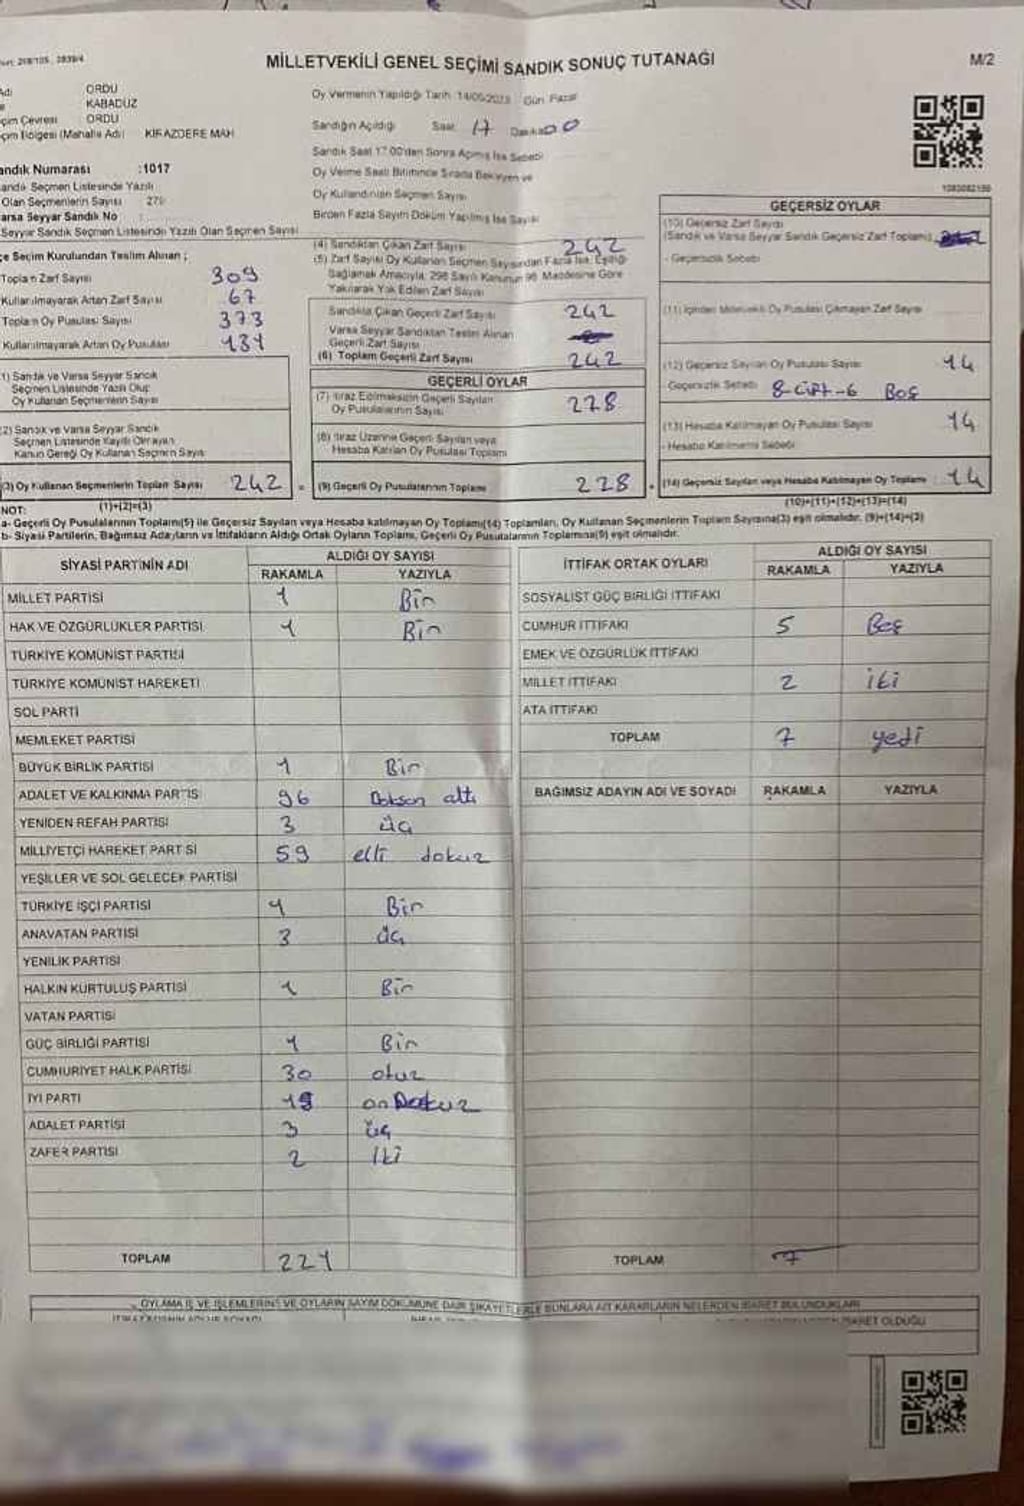 MİLLETVEKİLİ GENEL SEÇİMİ SANDIK SONUÇ TUTANAĞI
M/2
ORDU
KABADUZ
ORDU
KİRAZDERE MAH
Oy Vermenin Yapıldığı Tarih 14/05/2023 Gün Pazar
Sandığın Açıldığı Saat 17 Dakika 00
Sandık Saat 17:00'den Sonra Açılmış İse Sebebi
Oy Verme Saati Bitiminde Sırada Bekleyen ve
Oy Kullandırılan Seçmen Sayısı
Birden Fazla Sayım Döküm Yapılmış İse Sayısı
andık Numarası :1017
andık Seçmen Listesinde Yazılı
Olan Seçmenlerin Sayısı
arsa Seyyar Sandık No
Seyyar Sandık Seçmen Listesinde Yazılı Olan Seçmen Sayısı
çe Seçim Kurulundan Teslim Alınan ;
Toplam Zarf Sayısı 309
Kullanılmayarak Artan Zarf Sayısı 67
Toplam Oy Pusulası Sayısı 373
Kullanılmayarak Artan Oy Pusulası 131
1) Sandık ve Varsa Seyyar Sandık
Seçmen Listesinde Yazılı Olup
Oy Kullanan Seçmenlerin Sayısı
2) Sandık ve Varsa Seyyar Sandık
Seçmen Listesinde Kayıtlı Olmayan
Kanun Gereği Oy Kullanan Seçmen Sayısı
(3) Oy Kullanan Seçmenlerin Toplam Sayısı 242 =
(1)+(2)=(3)
(4) Sandıktan Çıkan Zarf Sayısı 242
(5) Zarf Sayısı Oy Kullanan Seçmen Sayısından Fazla İse, Eşitliği
Sağlamak Amacıyla, 298 Sayılı Kanunun 98. Maddesine Göre
Yakılarak Yok Edilen Zarf Sayısı
Sandıkta Çıkan Geçerli Zarf Sayısı 242
Varsa Seyyar Sandıktan Teslim Alınan
Geçerli Zarf Sayısı
(6) Toplam Geçerli Zarf Sayısı 242
GEÇERLİ OYLAR
(7) İtiraz Edilmeksizin Geçerli Sayılan
Oy Pusulalarının Sayısı 228
(8) İtiraz Üzerine Geçerli Sayılan veya
Hesaba Katılan Oy Pusulası Toplamı
(9) Geçerli Oy Pusulalarının Toplamı 228
GEÇERSİZ OYLAR
(10) Geçersiz Zarf Sayısı
(Sandık ve Varsa Seyyar Sandık Geçersiz Zarf Toplamı)
- Geçersizlik Sebebi
(11) İçinden Milletvekili Oy Pusulası Çıkmayan Zarf Sayısı
(12) Geçersiz Sayılan Oy Pusulası Sayısı 14
Geçersizlik Sebebi 8-Çift-6 Boş
(13) Hesaba Katılmayan Oy Pusulası Sayısı 14
- Hesaba Katılmama Sebebi
(14) Geçersiz Sayılan veya Hesaba Katılmayan Oy Toplamı 14
(10)+(11)+(12)+(13)=(14)
NOT:
a- Geçerli Oy Pusulalarının Toplamı(9) ile Geçersiz Sayılan veya Hesaba katılmayan Oy Toplamı(14) Toplamları, Oy Kullanan Seçmenlerin Toplam Sayısına(3) eşit olmalıdır. (9)+(14)=(3)
b- Siyasi Partilerin, Bağımsız Adayların ve İttifakların Aldığı Ortak Oyların Toplamı, Geçerli Oy Pusulalarının Toplamına(9) eşit olmalıdır.
SİYASİ PARTİNİN ADI ALDIĞI OY SAYISI
RAKAMLA YAZIYLA
MİLLET PARTİSİ 1 Bir
HAK VE ÖZGÜRLÜKLER PARTİSİ 1 Bir
TÜRKİYE KOMÜNİST PARTİSİ
TÜRKİYE KOMÜNİST HAREKETİ
SOL PARTİ
MEMLEKET PARTİSİ
BÜYÜK BİRLİK PARTİSİ 1 Bir
ADALET VE KALKINMA PARTİSİ 96 Doksan altı
YENİDEN REFAH PARTİSİ 3 üç
MİLLİYETÇİ HAREKET PARTİSİ 59 elli dokuz
YEŞİLLER VE SOL GELECEK PARTİSİ
TÜRKİYE İŞÇİ PARTİSİ 1 Bir
ANAVATAN PARTİSİ 3 üç
YENİLİK PARTİSİ
HALKIN KURTULUŞ PARTİSİ 1 Bir
VATAN PARTİSİ
GÜÇ BİRLİĞİ PARTİSİ 1 Bir
CUMHURİYET HALK PARTİSİ 30 otuz
İYİ PARTİ 19 on Dokuz
ADALET PARTİSİ 3 üç
ZAFER PARTİSİ 2 iki
TOPLAM 221
İTTİFAK ORTAK OYLARI ALDIĞI OY SAYISI
RAKAMLA YAZIYLA
SOSYALİST GÜÇ BİRLİĞİ İTTİFAKI
CUMHUR İTTİFAKI 5 Beş
EMEK VE ÖZGÜRLÜK İTTİFAKI
MİLLET İTTİFAKI 2 iki
ATA İTTİFAKI
TOPLAM 7 yedi
BAĞIMSIZ ADAYIN ADI VE SOYADI RAKAMLA YAZIYLA
TOPLAM 7
OYLAMA İŞ VE İŞLEMLERİNE VE OYLARIN SAYIM DÖKÜMÜNE DAİR ŞİKAYETLERLE BUNLARA AİT KARARLARIN NELERDEN İBARET BULUNDUKLARI